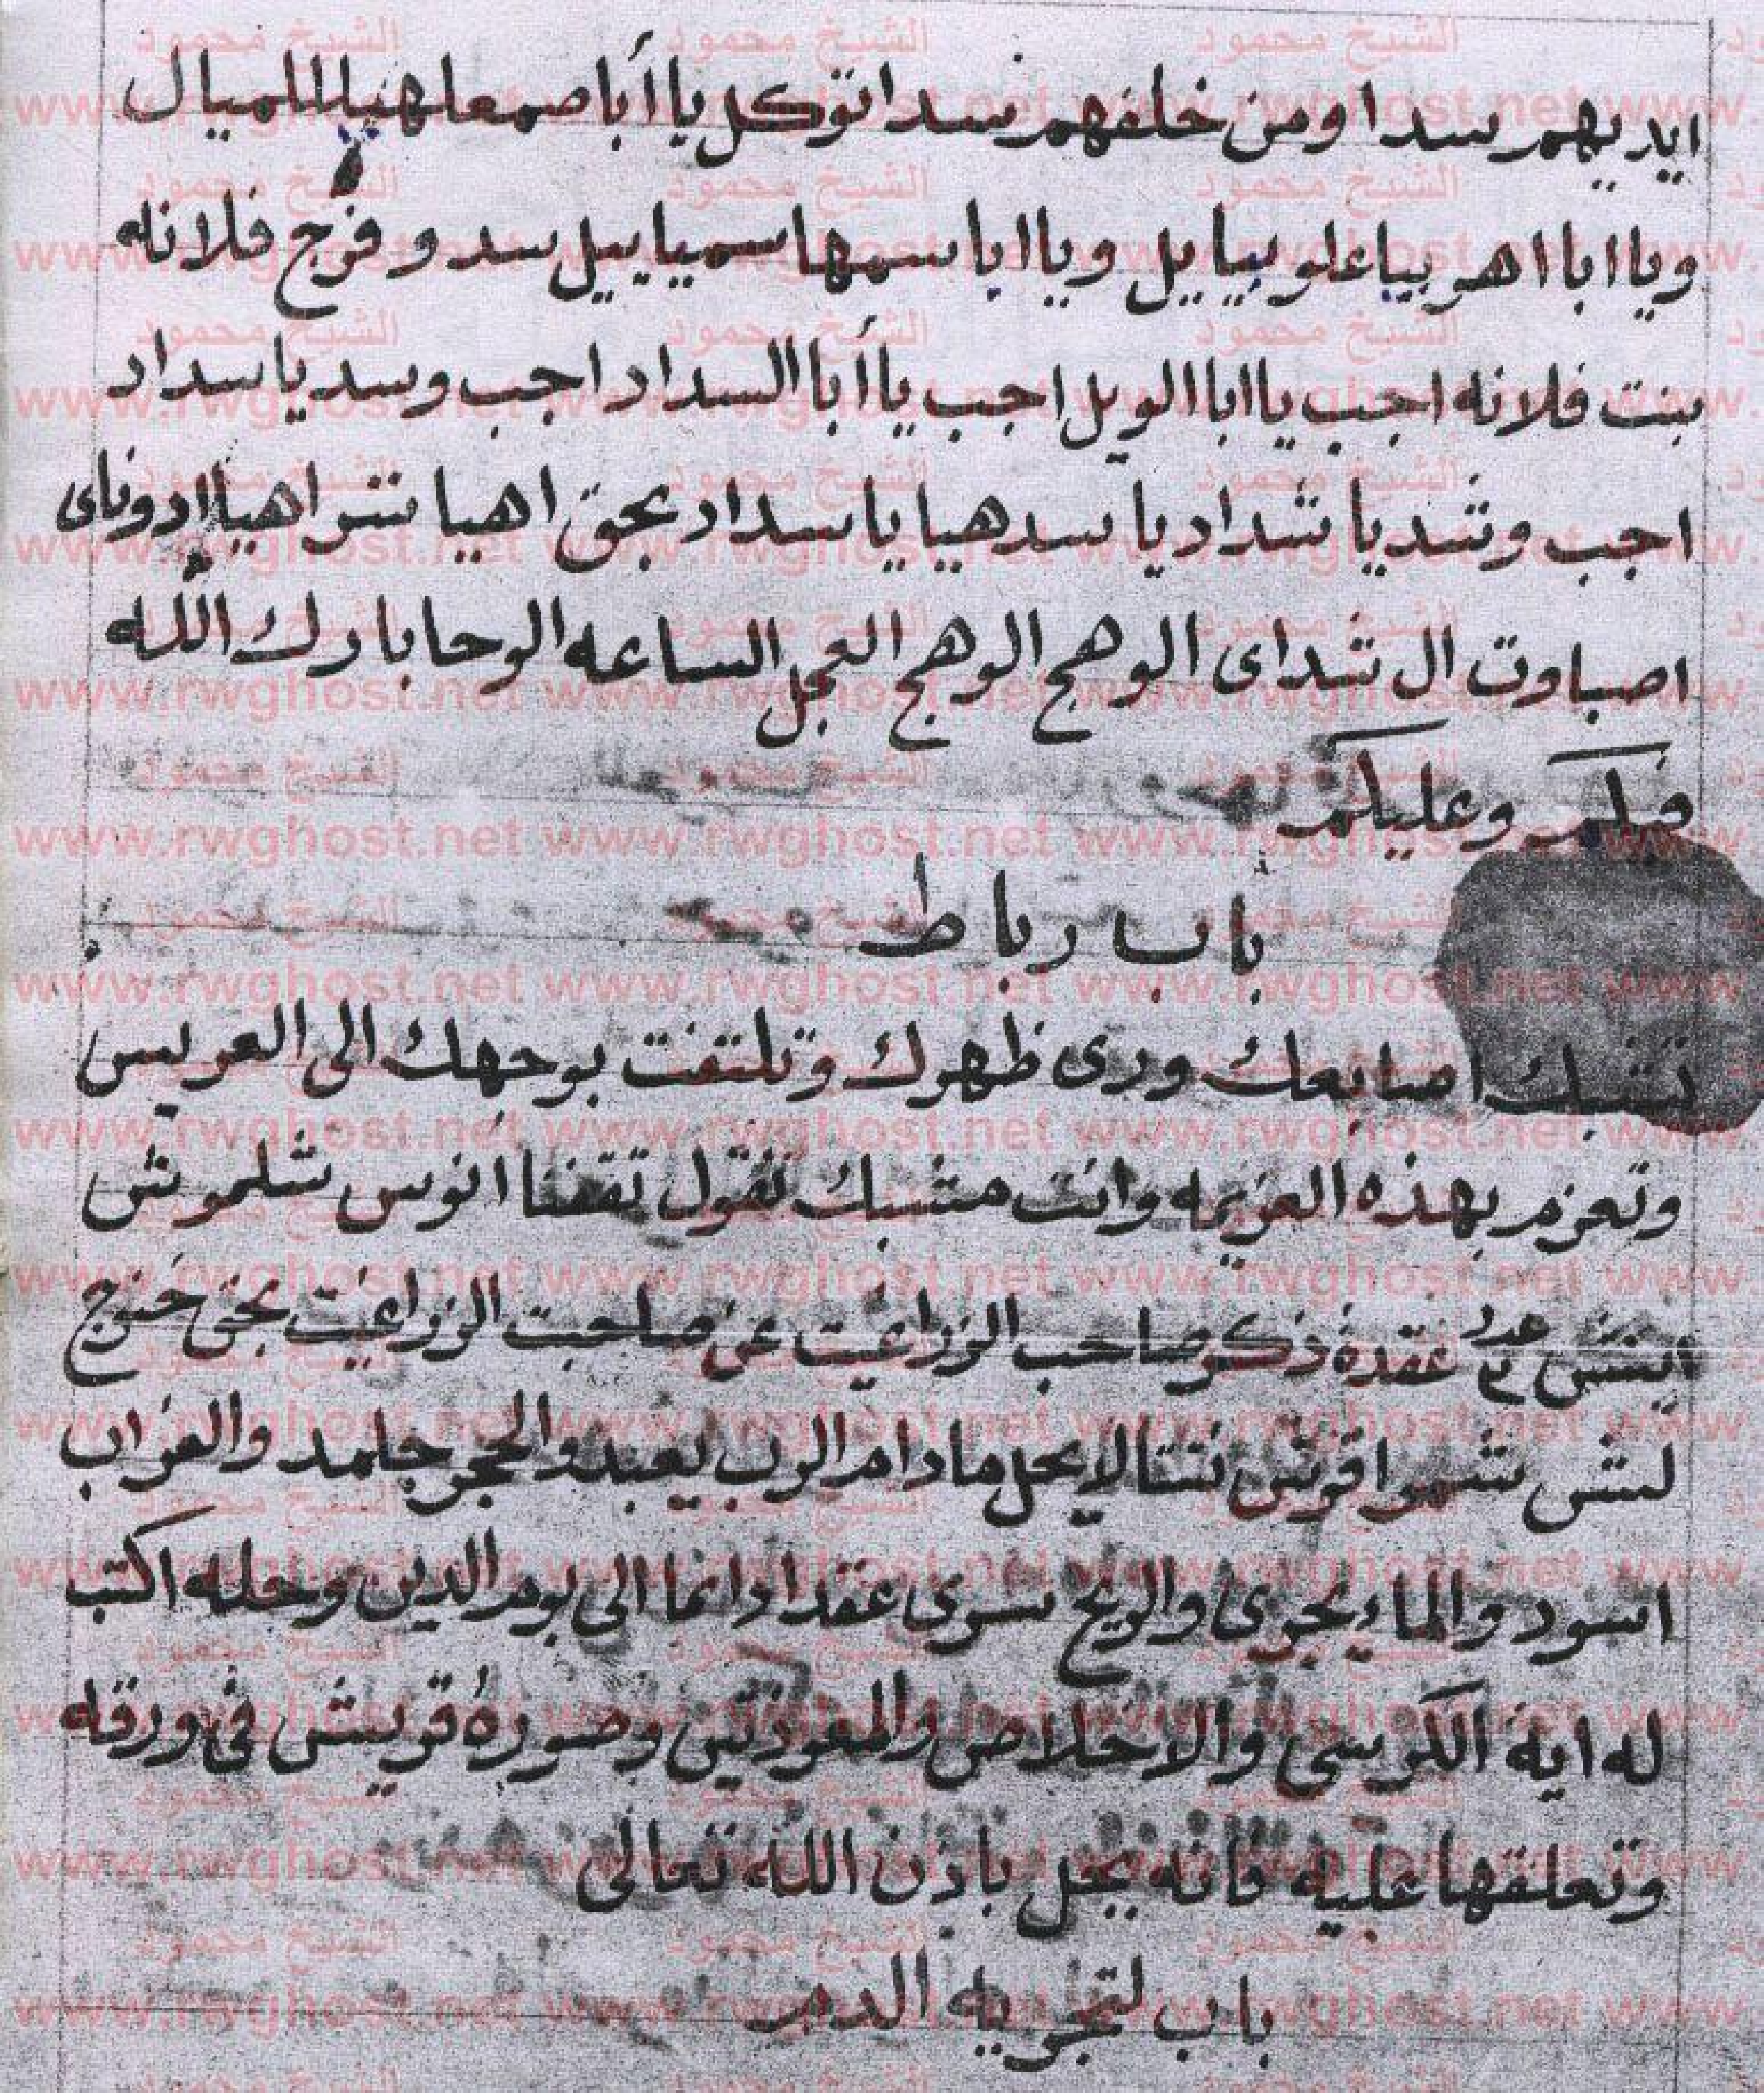 ايديهم سدا ومن خلفهم سدا توكل يا أبا صمعلهيلا الميال
ويا ابا اهر بياعلو بيايل ويا ابا سمها سميايل سد وفرج فلانه
بنت فلانه اجب يا ابا الويل اجب يا أبا السداد اجب وسد يا سداد
اجب وشد يا شداد يا سدهيا يا سداد بحق اهيا شراهيا ادوناى
اصباوت ال شداى الوهج الوهج العجل الساعه الوحا بارك الله
فيكم وعليكم
باب رباط
تشبك اصابعك ورى ظهرك وتلتفت بوجهك الى العريس
وتعزم بهذه العزيمه وانت مشبك تقول تقفنا انوس شلموش
عدد ٣ عقدة ذكر صاحب الزراعيت عن صاحبت الزراعيت بحق
لا يحل مادام الرب يعبد والحجر جلمد والغراب
اسود والماء يجرى والريح سرى عقدا دائما الى يوم الدين وحله اكتب
له اية الكرسى والاخلاص والمعوذتين وصورة قريش فى ورقه
وتعلقها عليه فانه يحل باذن الله تعالى
باب لتجريه الدم
الشيخ محمود
www.rwghost.net